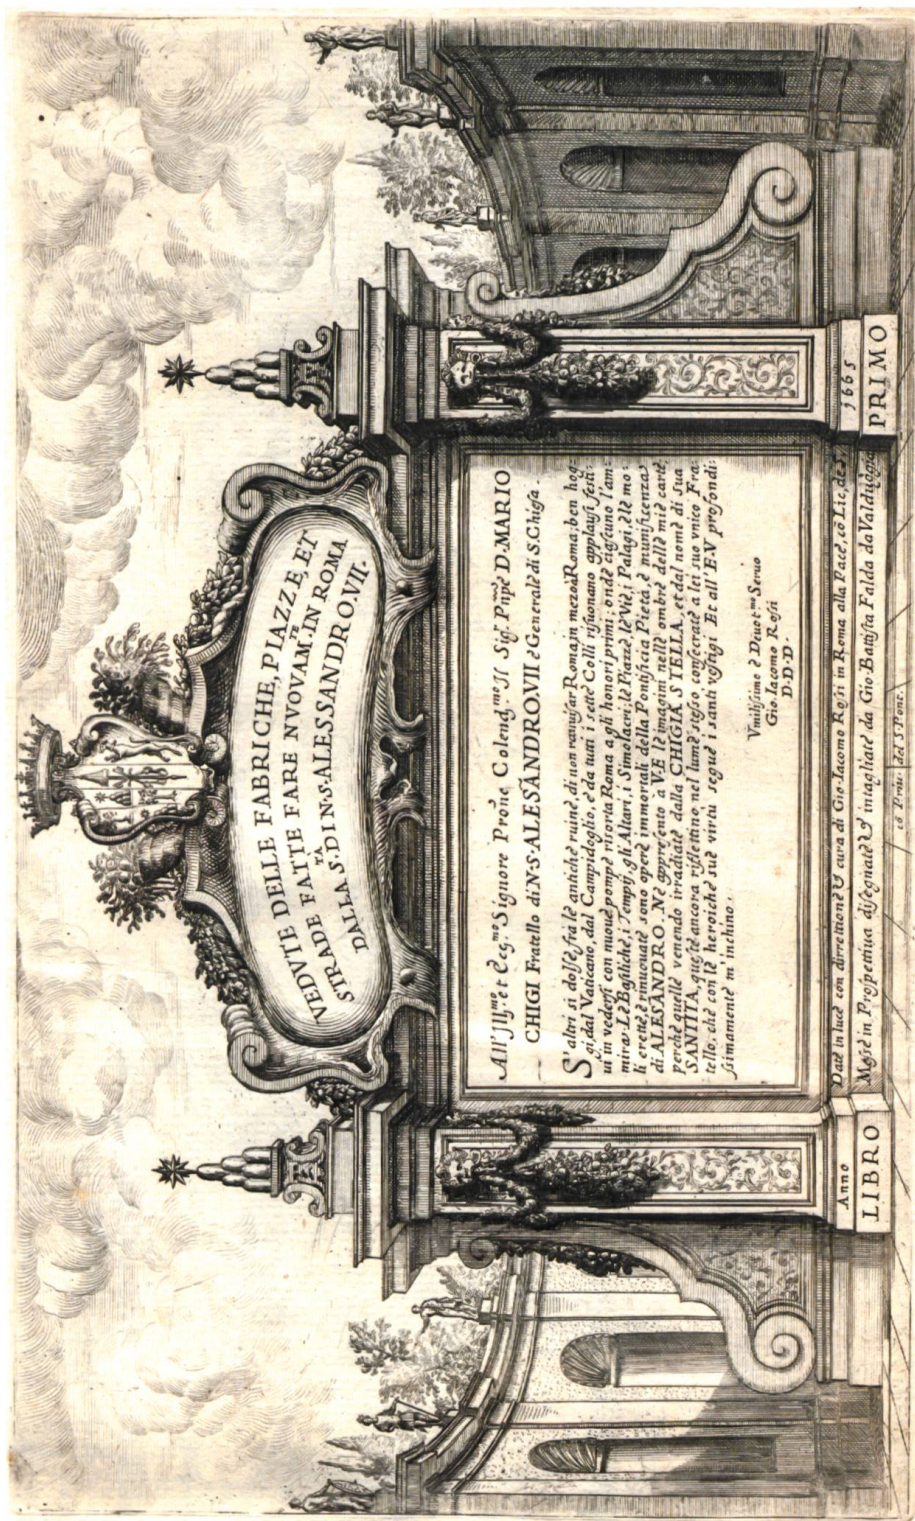 VEDVTE DELLE FABRICHE, PIAZZE, ET
STRADE FATTE FARE NVOVAM.TE IN ROMA
DALLA S.TA DI N.S. ALESSANDRO.VII.
All' Ill.mo et Ecc.mo Signore Prone Colend.mo Il Sig. Pnpe D. MARIO
CHIGI Fratello di N.S. ALESANDRO.VII e Generale di S. Chiesa.
S'altri si dolse frà le antiche ruine di non rauuisar Roma in mezo à Roma; ben hog-
gi, dal Vaticano, dal Campidoglio, e da tutti i sette Colli risuonano applausi festi-
ui in vedersi con nuoue pompe risorta Roma à gli honori primi: onde ciascuno l'am-
mira. Le Basiliche, i Tempij, gli Altari, i Simolacri, le Piazze, le Vie, i Palagi, è le mo
li erette, è rinouate sono opere immortali della Pontificia Pietà, è munificenza
di ALESANDRO. Ne appresento a V.E. le imagini nelle ombre delle mie carte,
perche quelle venendo irradiate dalla CHIGIA STELLA, et dal nome di SUA
SANTITA, queste ancora rissettino nel lume stesso, consecrate a lei suo vnico Fra
tello, che con le heroiche sue virtù segue i santi vestigi Et all' E.V. profondi-
simamente m'inchino.
Vmilissimo e Deuot.mo Seruo
Gio. Iacomo Rossi
D. D. D.
Date in luce con direttione, & cura di Gio. Iacomo Rossi in Roma alla Pace, cõ Lic. de
Messe in Prospettiua disegnate, & intagliate da Gio. Battista Falda da Valduggia
cõ Priu. del S. Pont.
Anno 1665
LIBRO PRIMO